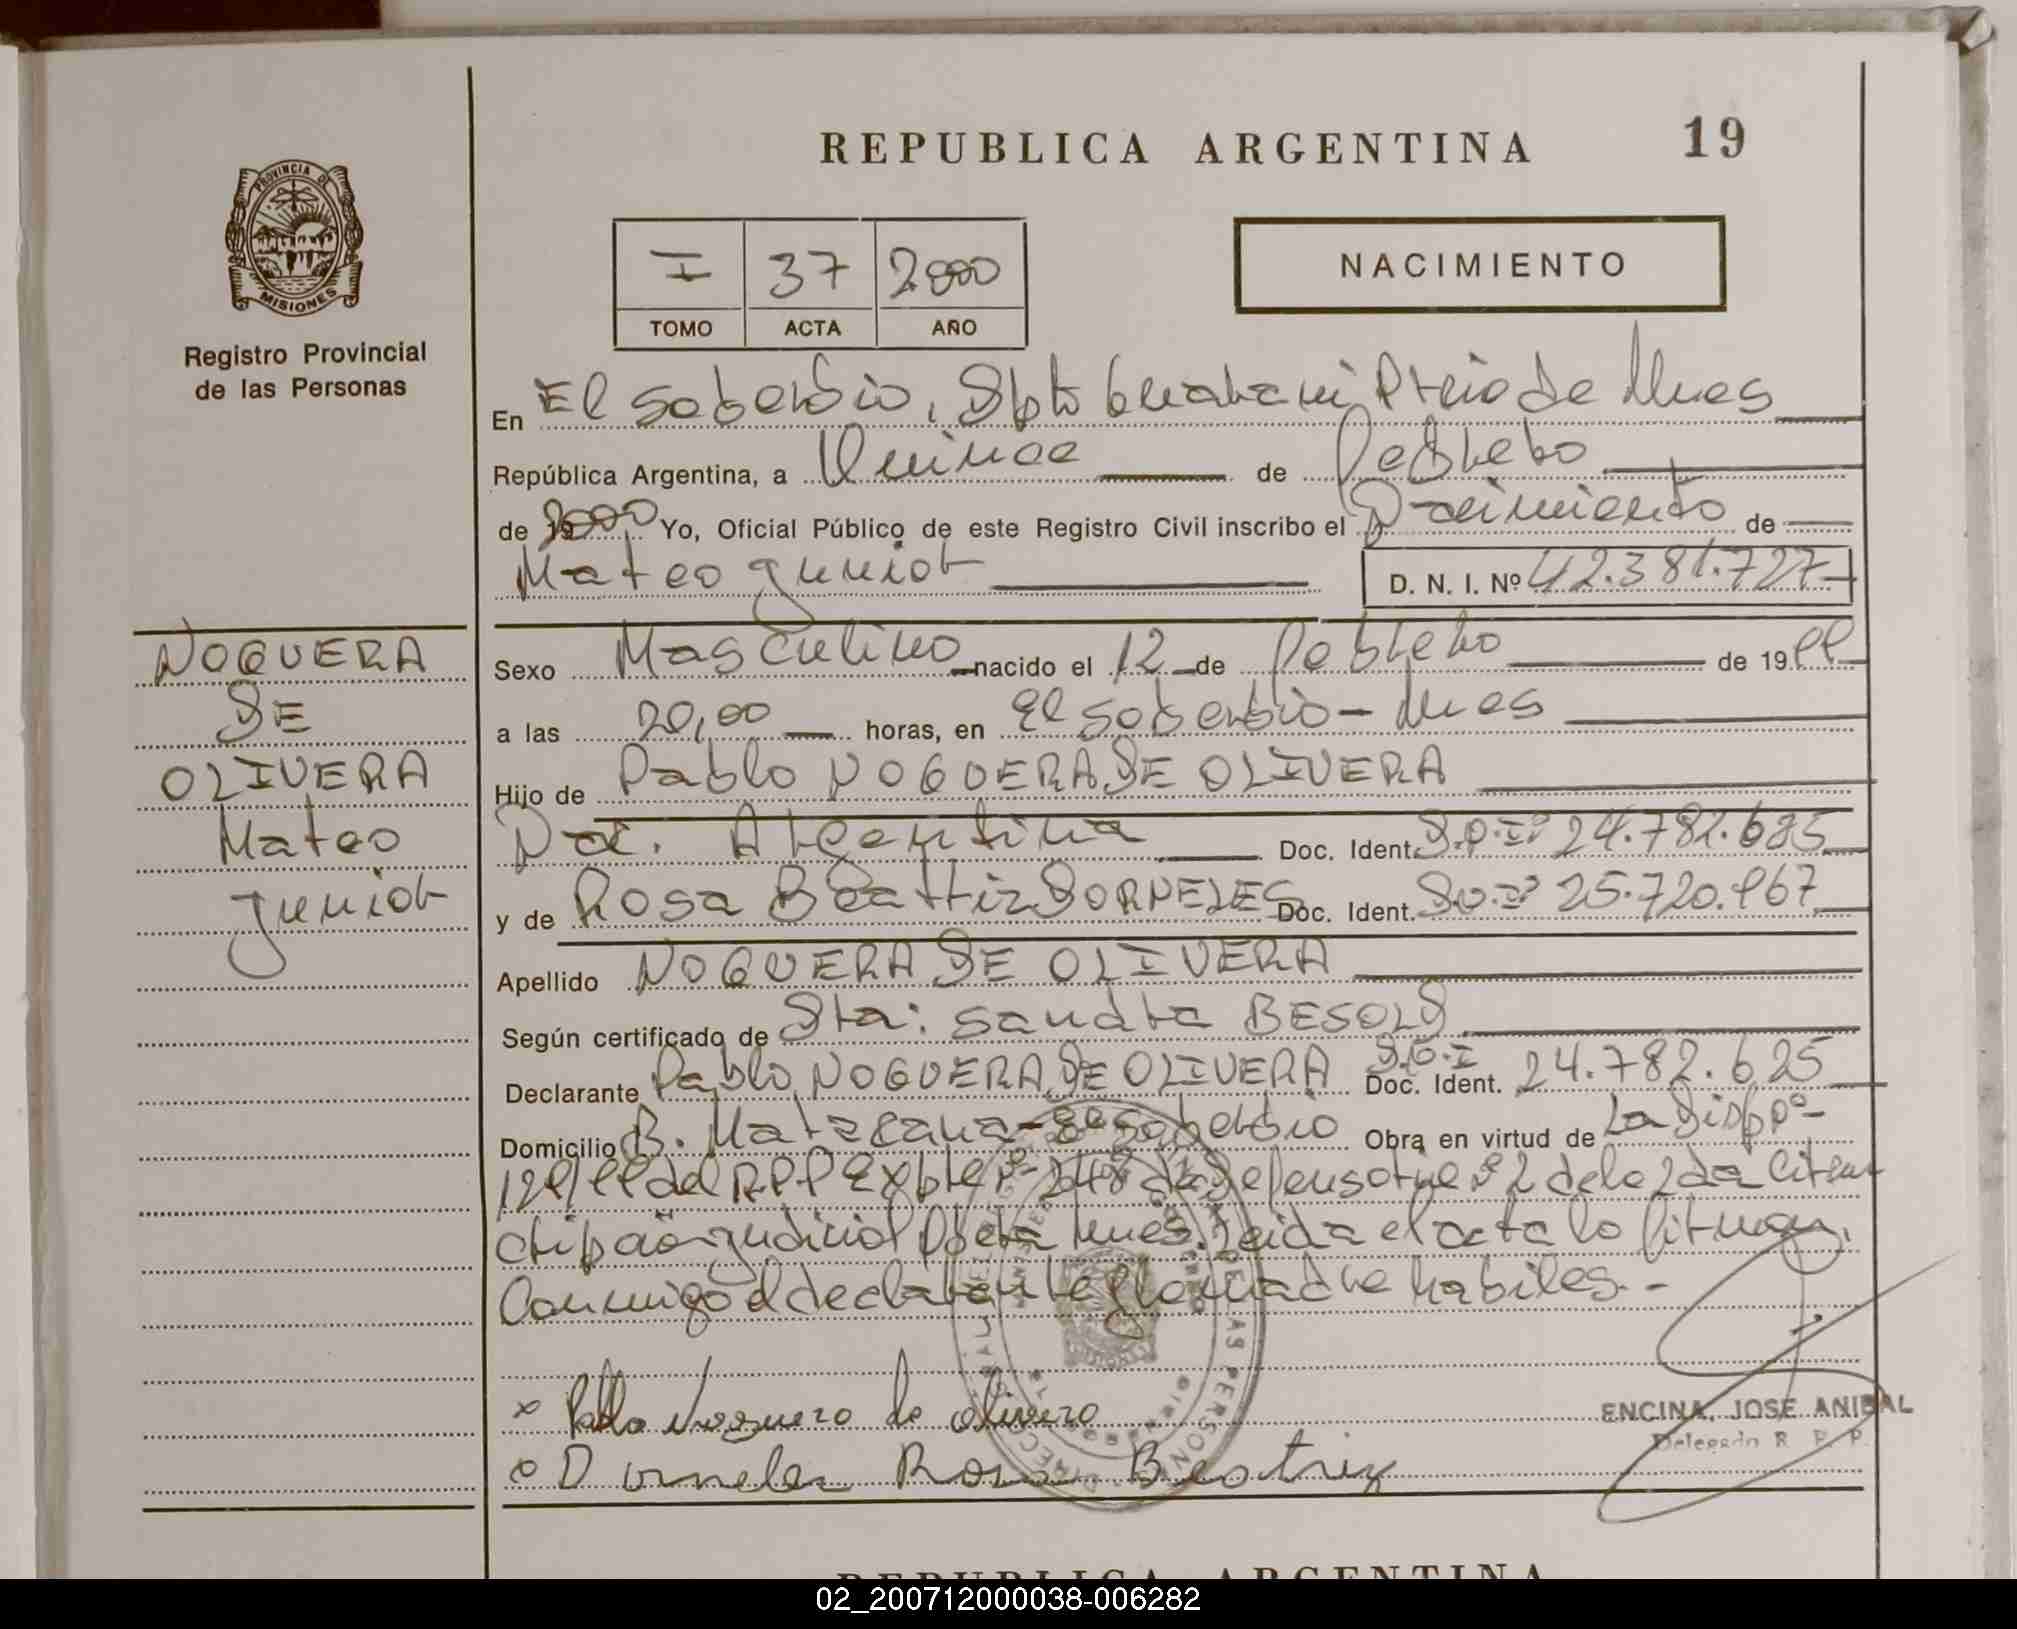 REPUBLICA ARGENTINA 19
PROVINCIA DE
MISIONES
Registro Provincial
de las Personas
I 37 2000
TOMO ACTA AÑO
NACIMIENTO
En El soberbio, Dpto Guarani Pcia de Mnes
República Argentina, a Quince de Febrero
de 2000 Yo, Oficial Público de este Registro Civil inscribo el Nacimiento de
Mateo Junior D. N. I. Nº 42.381.727
NOGUERA
DE
OLIVERA
Mateo
Junior
Sexo Masculino nacido el 12 de Febrero de 1999
a las 20,00 horas, en El soberbio - Mnes
Hijo de Pablo NOGUERA DE OLIVERA
Nac. Argentina Doc. Ident. D.N.I. 24.782.625
y de Rosa Beatriz DORNELES Doc. Ident. D.N.I. 25.720.967
Apellido NOGUERA DE OLIVERA
Según certificado de Sra: Sandra BESOLD
Declarante Pablo NOGUERA DE OLIVERA Doc. Ident. D.N.I 24.782.625
Domicilio B. Matacana - El soberbio Obra en virtud de La Dispo-
129/99 del R.P.P Expte Nº 248 de Defensoria Nº 2 de la 2da Circuns
cripcion judicial Pcia Mnes. Leida el acta lo firman
Conmigo el declarante y la madre habiles.-
x Pablo Noguera de Olivera
x Dorneles Rosa Beatriz
ENCINA, JOSE ANIBAL
Delegado R. P. P.
REPUBLICA ARGENTINA
02_200712000038-006282